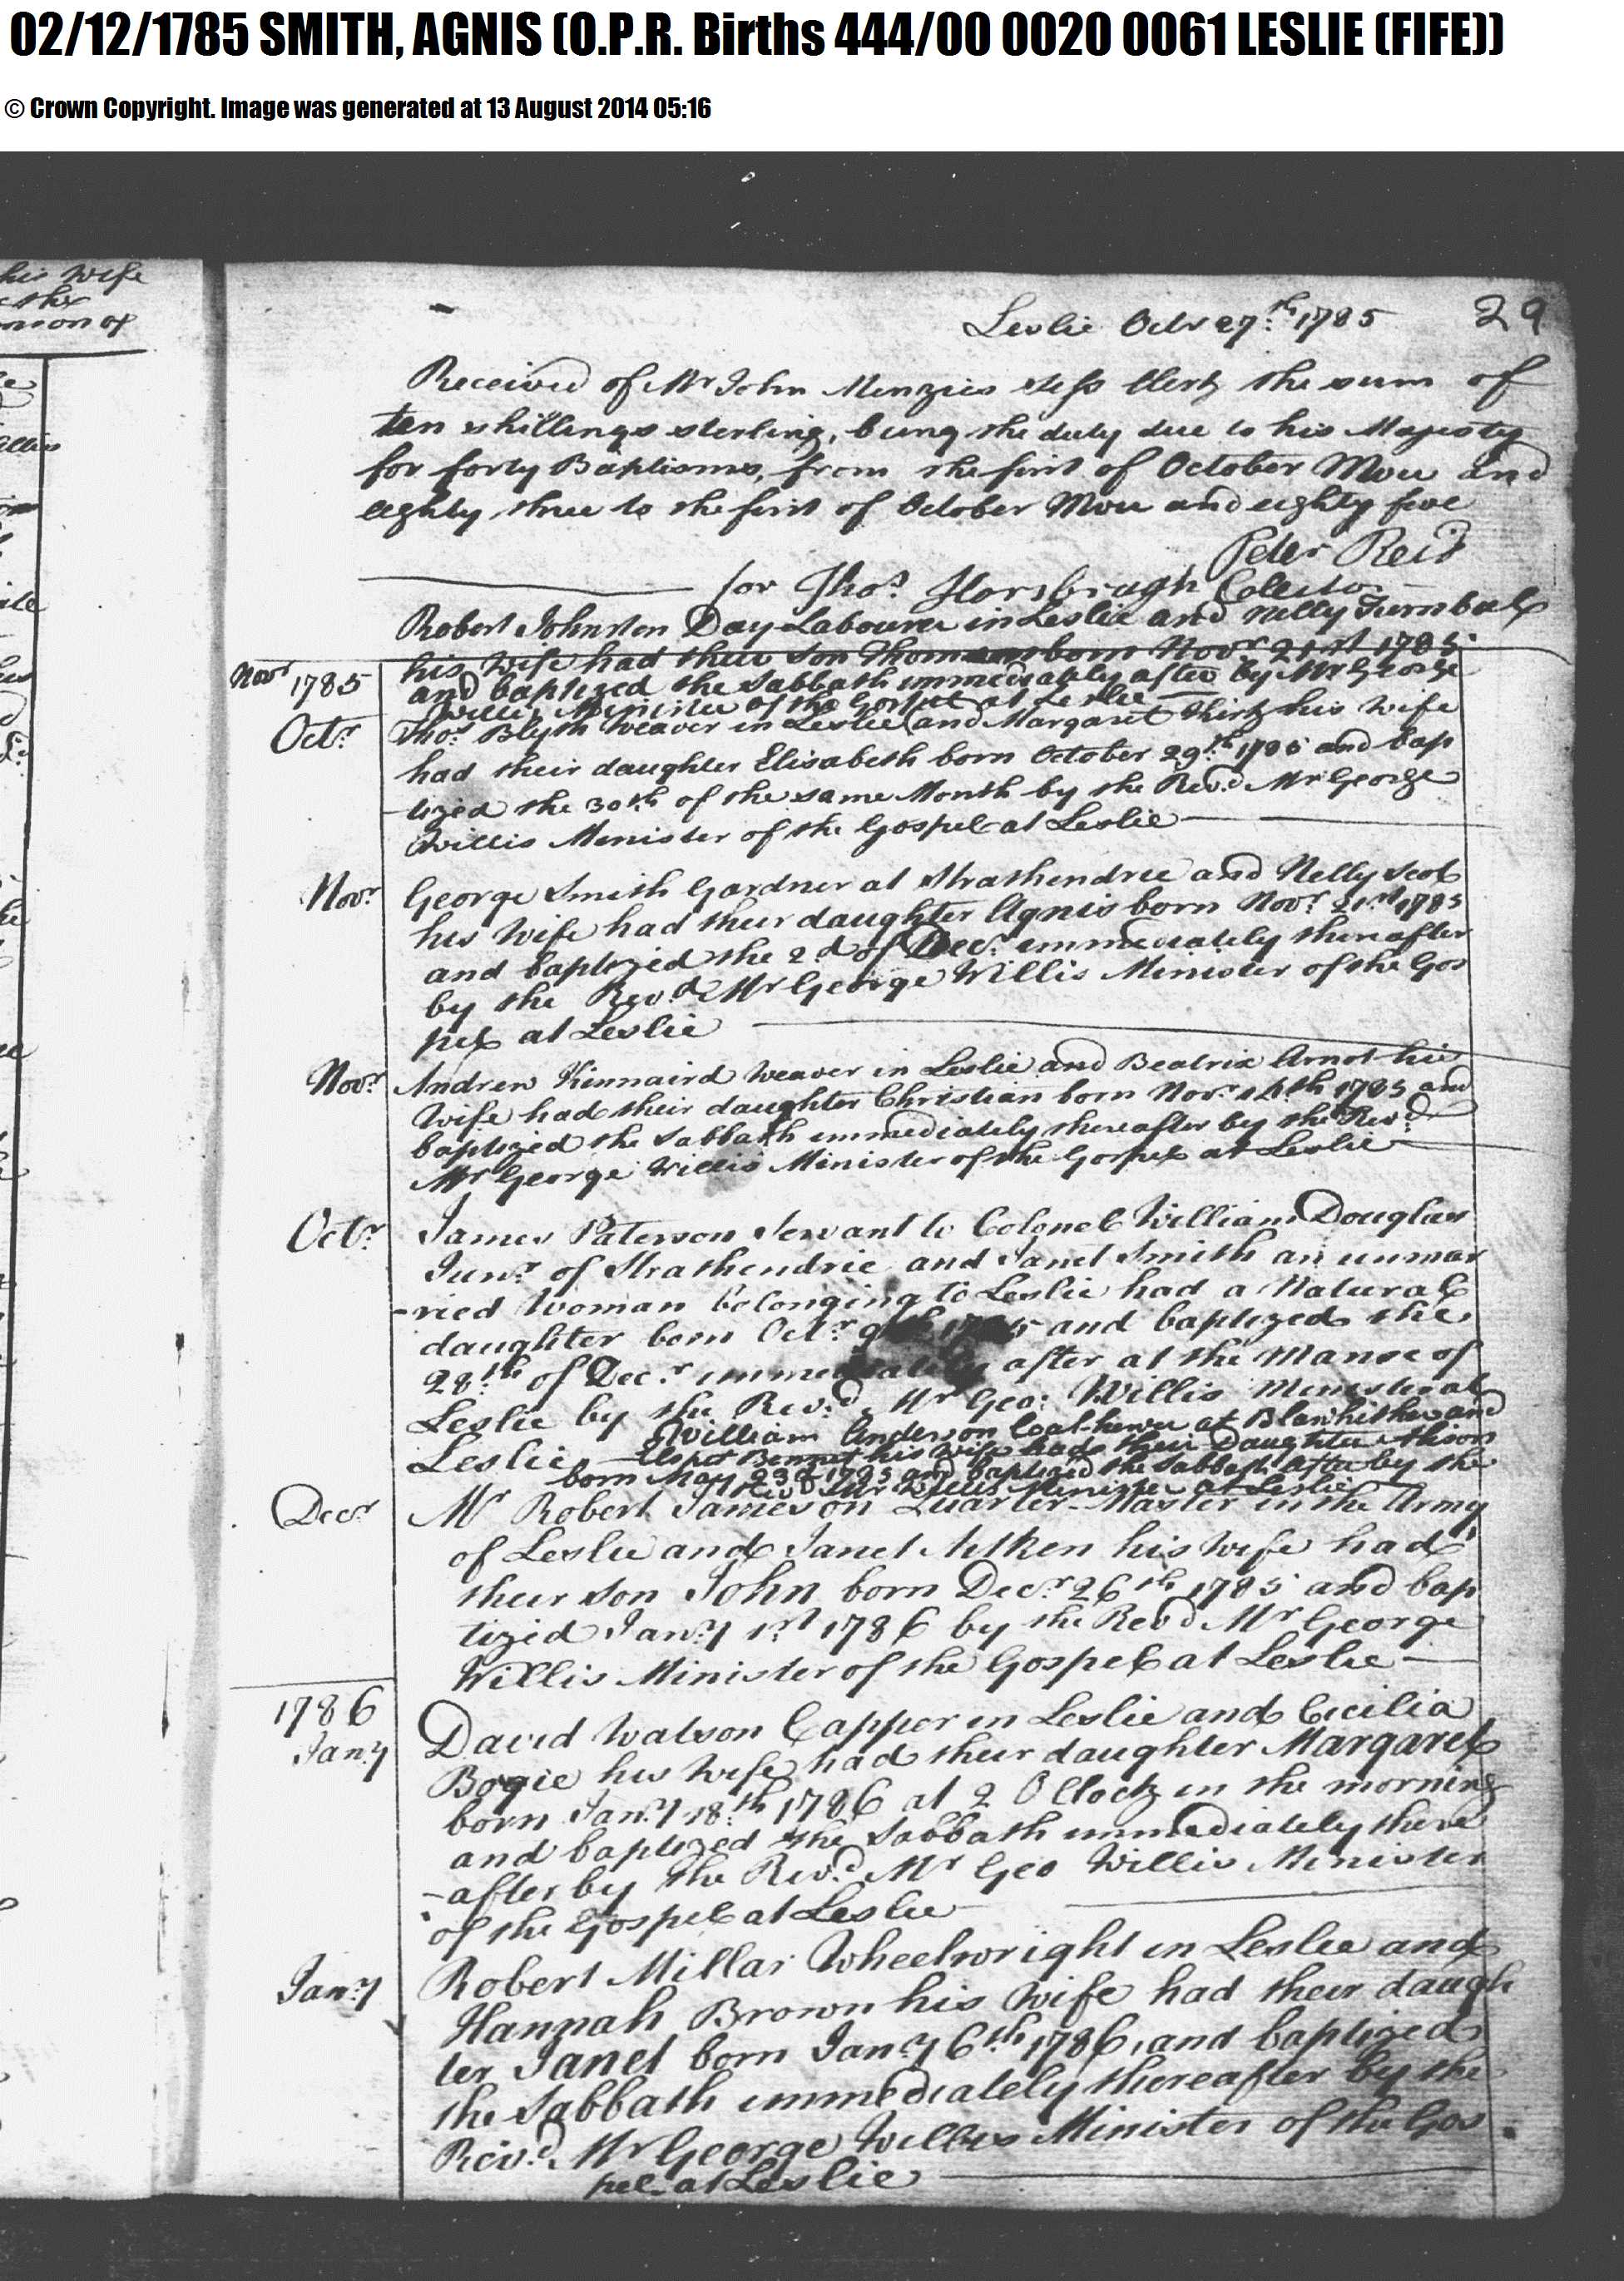 02/12/1785 SMITH, AGNIS (O.P.R. Births 444/00 0020 0061 LESLIE (FIFE))
© Crown Copyright. Image was generated at 13 August 2014 05:16
his wife
the
29
Leslie Octr 27th 1785
Received of Mr John Menzies Sess Clerk the sum of
ten shillings sterling, being the duty due to his Majesty
for forty Baptisms, from the first of October and
eighty three to the first of October and eighty five
Peter Reid
for Thos. Horsbrugh Collector
Robert Johnston Day Labourer in Leslie and Nelly Turnbull
Novr 1785
his Wife had their son Thomas born Novr 21st 1785
and baptized the Sabbath immediately after by Mr George
Willis Minister of the Gospel at Leslie
Octr
Thos. Blyth Weaver in Leslie and Margaret his Wife
had their daughter Elisabeth born October 29th 1785 and bap
-tized the 30th of the same Month by the Revd Mr George
Willis Minister of the Gospel at Leslie
Novr
George Smith Gardner at Strathendrie and Nelly Scot
his Wife had their daughter Agnis born Novr 21st 1785
and baptized the 2d of Decr immediately thereafter
by the Revd Mr George Willis Minister of the Gos
pel at Leslie
Novr
Andrew Kinnaird Weaver in Leslie and Beatrix Arnot his
Wife had their daughter Christian born Novr 1785 and
baptized the Sabbath immediately thereafter by the Revd
Mr George Willis Minister of the Gospel at Leslie
Octr
James Paterson Servant to Colonel William Douglas
Junr of Strathendrie and Janet Smith an unmar
-ried Woman belonging to Leslie had a Natural
daughter born Octr 9th 1785 and baptized the
28th of Decr immediately after at the Manse of
Leslie by the Revd Mr Geo: Willis Minister at
Leslie
William Anderson Coal-hewer at and
Elspet Bennet his wife had their Daughter Alison
born May 23d 1785 and baptized the Sabbath after by the
Revd Mr Willis Minister at Leslie
Decr
Mr Robert Jameson Quarter-Master in the Army
of Leslie and Janet Aitken his Wife had
their son John born Decr 26th 1785 and bap
tized Jany 1st 1786 by the Revd Mr George
Willis Minister of the Gospel at Leslie
1786
Jany
David Watson Capper in Leslie and Cicilia
Bogie his Wife had their daughter Margaret
born Jany 18th 1786 at 2 O Clock in the morning
and baptized the Sabbath immediately there
-after by the Revd Mr Geo Willis Minister
of the Gospel at Leslie
Jany
Robert Millar Wheelwright in Leslie and
Hannah Brown his Wife had their daugh
ter Janet born Jany 6th 1786, and baptized
the Sabbath immediately thereafter by the
Revd Mr George Willis Minister of the Gos
pel at Leslie